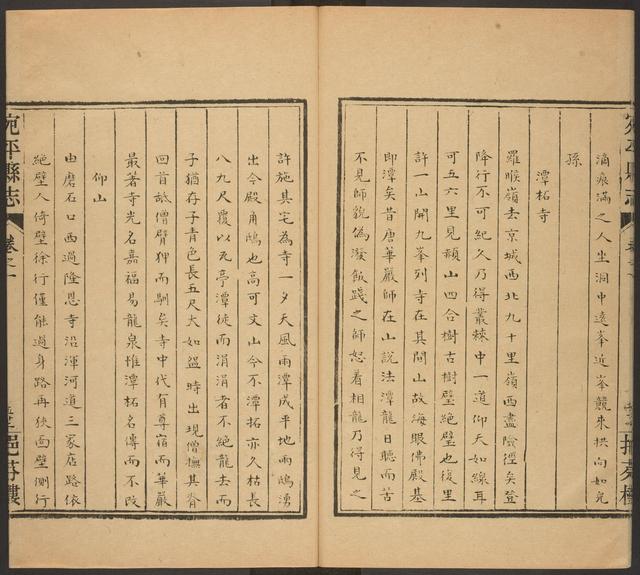 滴痕滿之人坐洞中遠峯近峯競來拱向如兒
孫
潭柘寺
羅睺嶺去京城西北九十里嶺西盡險徑矣登
降行不可紀久乃得叢棘中一道仰天如線耳
可五六里見顙山四合樹古樹壁絕壁也復里
許一山開九峯列寺在其間山故海眼佛殿基
即潭矣昔唐華嚴師在山說法潭龍日聽而苦
不見師貌偽潑飯踐之師怒着相龍乃得見之
許施其宅為寺一夕大風雨潭成平地兩鴟湧
出今殿角鴟也高可丈山今不潭柘亦久枯長
八九尺覆以瓦亭潭徙而涓涓者不絕龍去而
子猶存子青色長五尺大如盌時出現僧撫其脊
回首舐僧臂狎而馴矣寺中代有尊宿而華嚴
最著寺先名嘉福易龍泉惟潭柘名傳而不改
仰山
由磨石口西過隆恩寺沿渾河道三家店路依
絕壁人倚壁徐行僅能過身路再狹面壁側行
宛平縣志
卷之一